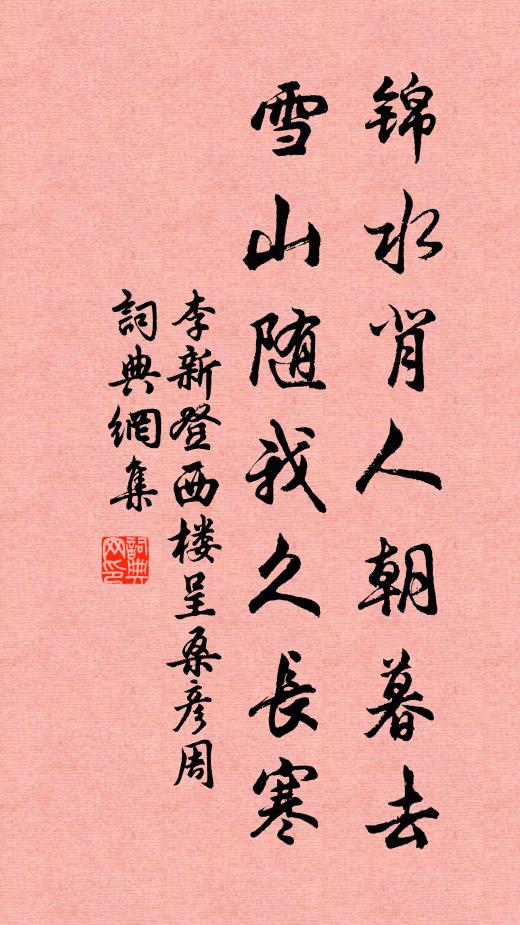 锦水背人朝暮去
雪山随我久長寒
李新登西楼呈桑彦周
詞典網集
詞典网印